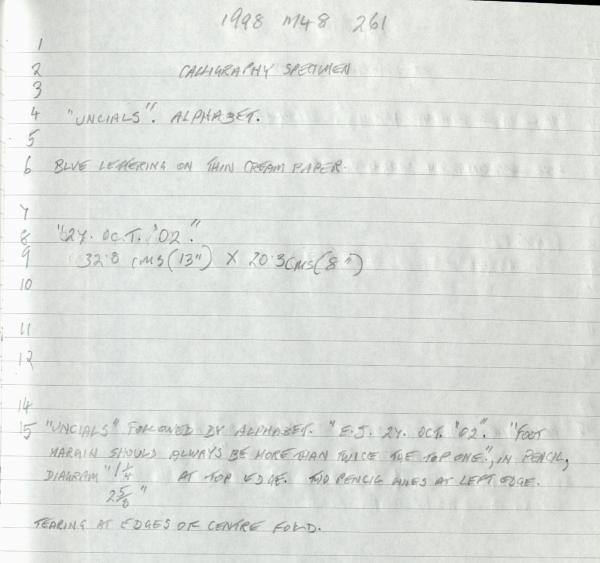 1998 M48 261
1
2 CALLIGRAPHY SPECIMEN
3
4 "UNCIALS". ALPHABET.
5
6 BLUE LETTERING ON THIN CREAM PAPER.
7
8 "24. OCT. '02."
9 32.8 CMS (13") X 20.3 CMS (8")
10
11
12
14
15 "UNCIALS" FOLLOWED BY ALPHABET. "E.J. 24. OCT. '02". "FOOT
MARGIN SHOULD ALWAYS BE MORE THAN TWICE THE TOP ONE.", IN PENCIL,
DIAGRAM "1 1/4 AT TOP EDGE. TWO PENCIL LINES AT LEFT EDGE.
2 5/8 "
TEARING AT EDGES OF CENTRE FOLD.